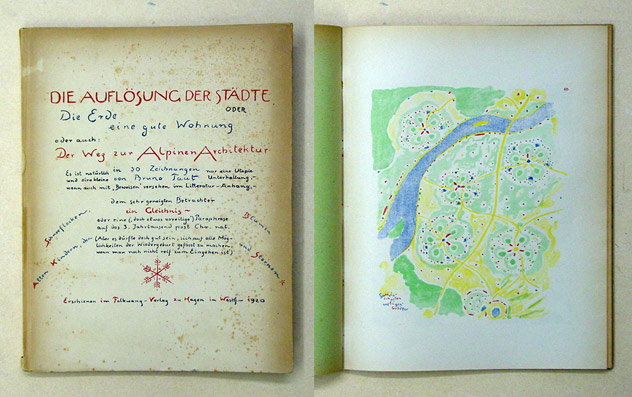 DIE AUFLÖSUNG DER STÄDTE
ODER
Die Erde
eine gute Wohnung
oder auch:
Der Weg zur Alpinen Architektur
Es ist natürlich in 30 Zeichnungen nur eine Utopie
und eine kleine von Bruno Taut Unterhaltung –
wenn auch mit „Beweisen" versehen im Litteratur-Anhang. –
dem sehr geneigten Betrachter
ein Gleichnis –
oder eine (doch etwas
Paraphrase
auf das 3. Jahrtausend post Chr. nat.
(Aber es dürfte doch gut sein, sich auf alle Mög-
lichkeiten der Wiedergeburt gefasst zu machen,
wenn man noch nicht reif zum Eingehen ist)
Allen Kindern, den
Schneeflocken,
Blumen
und Sternen
Erschienen im Folkwang-Verlag zu Hagen in Westf. – 1920